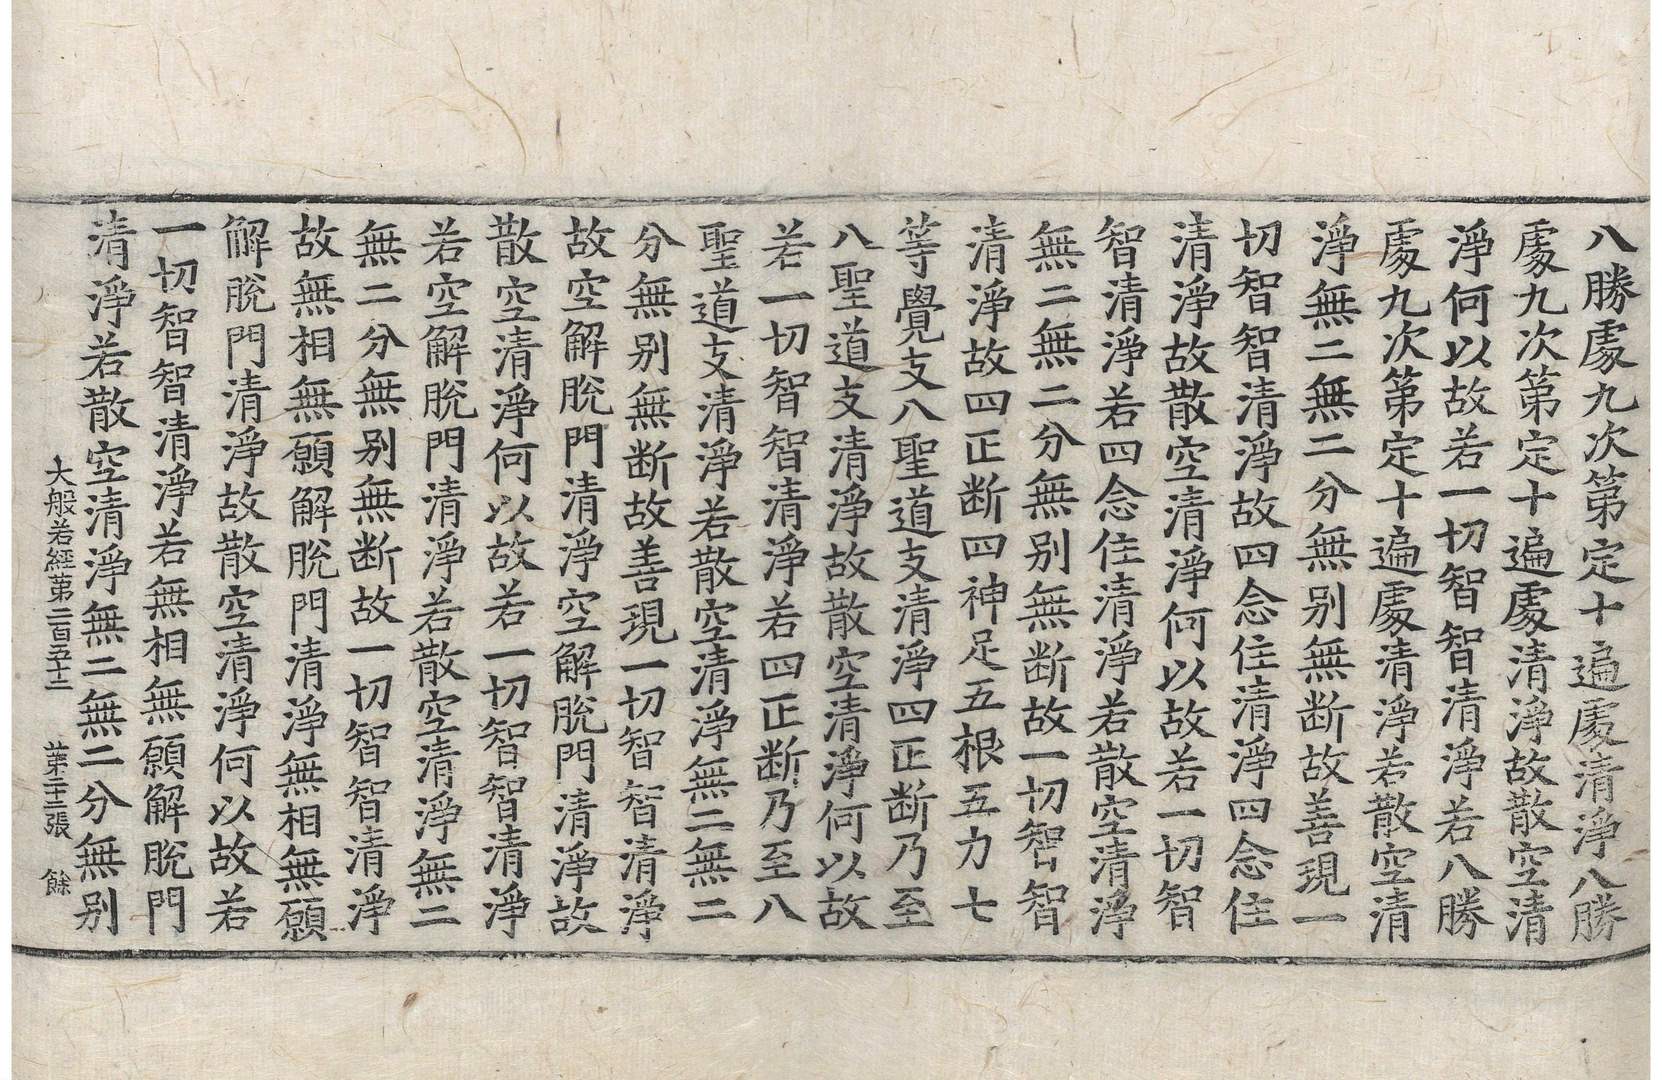 八勝處九次第定十遍處清淨八勝
處九次第定十遍處清淨故散空清
淨何以故若一切智智清淨若八勝
處九次第定十遍處清淨若散空清
淨無二無二分無别無断故善現一
切智智清淨故四念住清淨四念住
清淨故散空清淨何以故若一切智
智清淨若四念住清淨若散空清淨
無二無二分無别無断故一切智智
清淨故四正断四神足五根五力七
等覺支八聖道支清淨四正断乃至
八聖道支清淨故散空清淨何以故
若一切智智清淨若四正断乃至八
聖道支清淨若散空清淨無二無二
分無别無断故善現一切智智清淨
故空解脫門清淨空解脫門清淨故
散空清淨何以故若一切智智清淨
若空解脫門清淨若散空清淨無二
無二分無别無断故一切智智清淨
故無相無願解脫門清淨無相無願
解脫門清淨故散空清淨何以故若
一切智智清淨若無相無願解脫門
清淨若散空清淨無二無二分無别
大般若經第二百五十二 第二十二張 餘